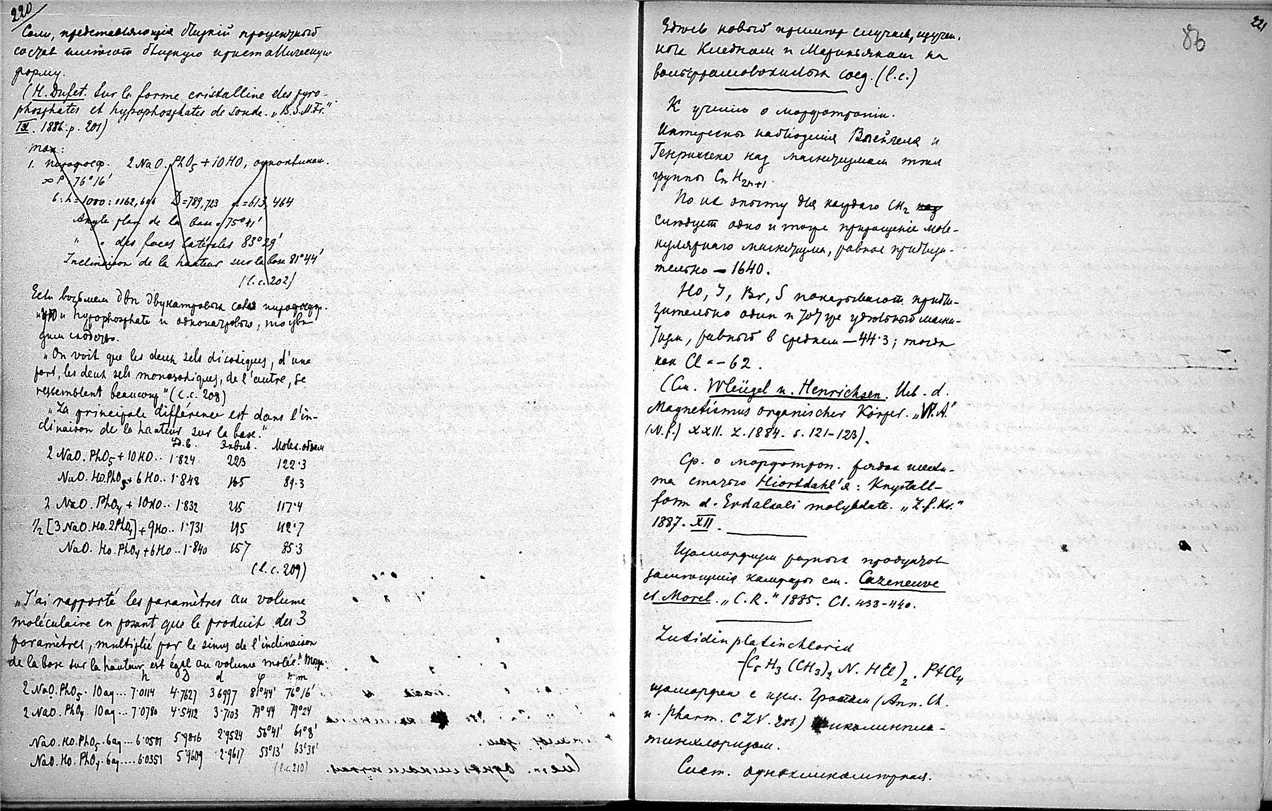 220
Соли, представляющія близкій процентный
составъ имѣютъ близкую кристаллическую
форму.
(H. Dufet. Sur la forme cristalline des pyro-
phosphates et hypophosphates de soude. „B. S. M. Fr."
IX. 1886. p. 201)
так:
1. пирофосф. 2 NaO. PhO5 + 10 HO, одноклин.
P = 76°16'
b:h = 1000:1162,606 D = 789,723 d = 613,464
Angle plan de la base = 75°41'
" " des faces latérales 83°29'
Inclinaison de la hauteur sur la base 81°44'
(l. c. 202)
Если возьмемъ двѣ двунатровыя соли пирофосф.
и hypophosphate и однонатровыя, то уви-
димъ сходство.
„On voit que les deux sels disodiques, d'une
part, les deux sels monosodiques, de l'autre, se
ressemblent beaucoup" (l. c. 208)
„La principale différence est dans l'in-
clinaison de la hauteur sur la base."
Эквив. Молек. объем
2 NaO. PhO5 + 10 HO.. 1.824 223 122.3
NaO. HO. PhO5 + 6 HO.. 1.848 165 89.3
2 NaO. PhO4 + 10 HO.. 1.832 215 117.4
1/2 [3 NaO. HO. 2PhO4] + 9 HO.. 1.731 195 112.7
NaO. HO. PhO4 + 6 HO.. 1.840 157 85.3
(l. c. 209)
„J'ai rapporté les paramètres au volume
moléculaire en posant que le produit des 3
paramètres, multiplié par le sinus de l'inclinaison
de la base sur la hauteur, est égal au volume moléc."
h D d φ mm
2 NaO. PhO5. 10 aq... 7.0114 4.7627 3.6997 81°44' 76°16'
2 NaO. PhO4. 10 aq... 7.0780 4.5412 3.7103 79°44 79°24
NaO. HO. PhO5. 6 aq.. 6.0501 5.9816 2.9524 56°41' 61°8'
NaO. HO. PhO4. 6 aq... 6.0351 5.9609 2.9617 53°13' 63°31'
(l. c. 210)
221
86
Здѣсь новый примѣръ случаевъ, изучен-
ныхъ Клейномъ и Мариньякомъ на
вольфрамовокислыхъ соед. (l. c.)
К ученію о морфотропіи.
Интересны наблюденія Влейгеля и
Генрихсена над магнетизмом тѣлъ
группы CnH2n+1.
По их опыту для каждаго CH2
слѣдуетъ одно и тоже приращеніе моле-
кулярнаго магнетизма, равное прибли-
тельно — 1640.
HO, J, Br, S показываютъ прибли-
зительно один и тотъ же удѣльный магне-
тизм, равный в среднем — 44.3; тогда
как Cl = -62.
(См. Wleügel u. Henrichsen. Ueb. d.
Magnetismus organischer Körper. „W. A."
(N. f.) XXII. L. 1884. s. 121-123).
Ср. о морфотроп. рядах
та статью Hiortdahl'я: Krystall-
form d. Erdalkali molybdate. „Z. f. Kr."
1887. XII.
Изоморфизмъ разныхъ продуктовъ
замѣщенія камфары см. Cazeneuve
et Morel. „C. R." 1885. CI. 438-440.
Lutidinplatinchlorid
(C5 H3 (CH3)2 N. HCl)2 . PtCl4
изоморфен с изсл. Гротом (Ann. Ch.
u. Pharm. CLV. 286) пиколинпла-
тинхлоридом.
Сист. одноклиномѣрная.